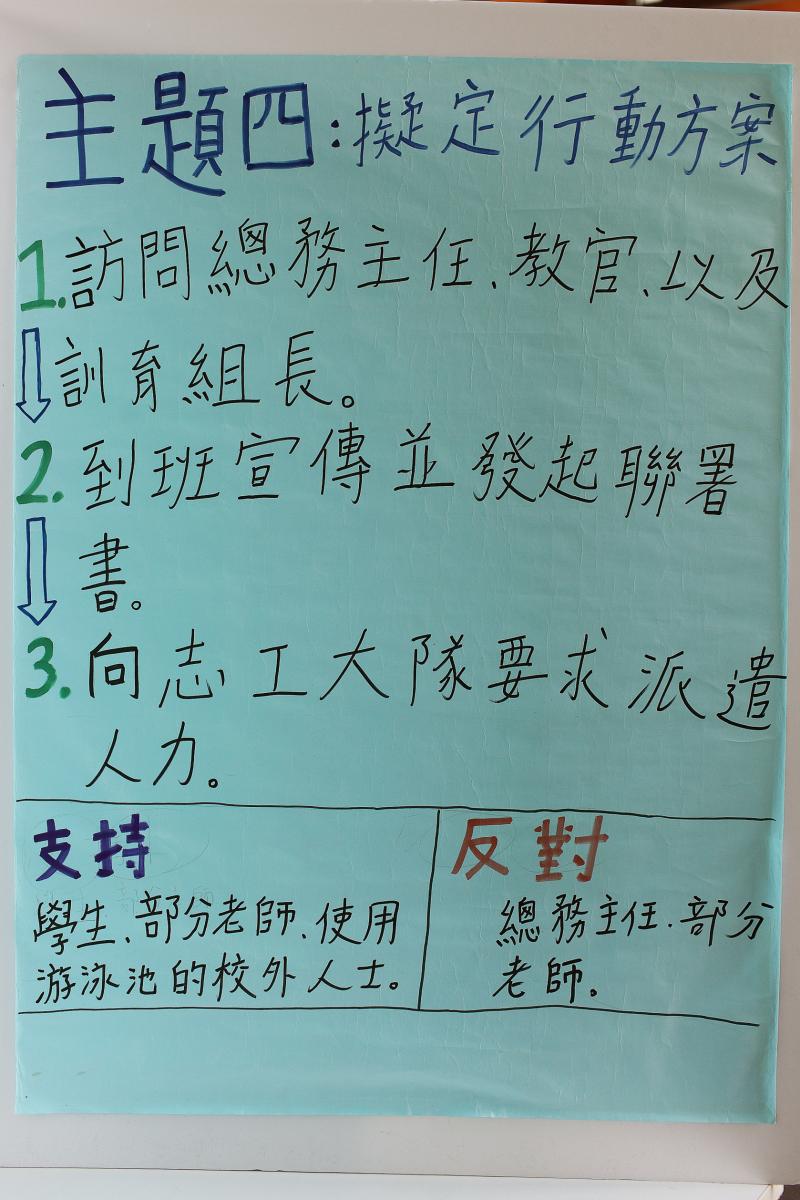 主題四:擬定行動方案
1.訪問總務主任、教官、以及
訓育組長。
2.到班宣傳並發起聯署
書。
3.向志工大隊要求派遣
人力。
支持
學生、部分老師、使用
游泳池的校外人士。
反對
總務主任、部分
老師。